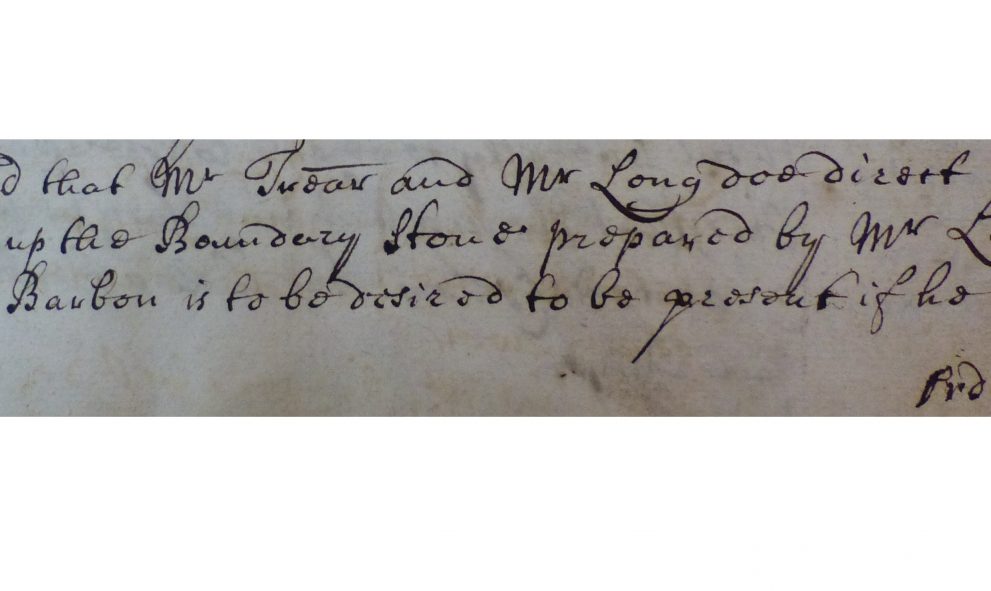 d that Mr Trēar and Mr Long doe direct
up the Boundary Stone prepared by Mr
Barbon is to be desired to be present if he